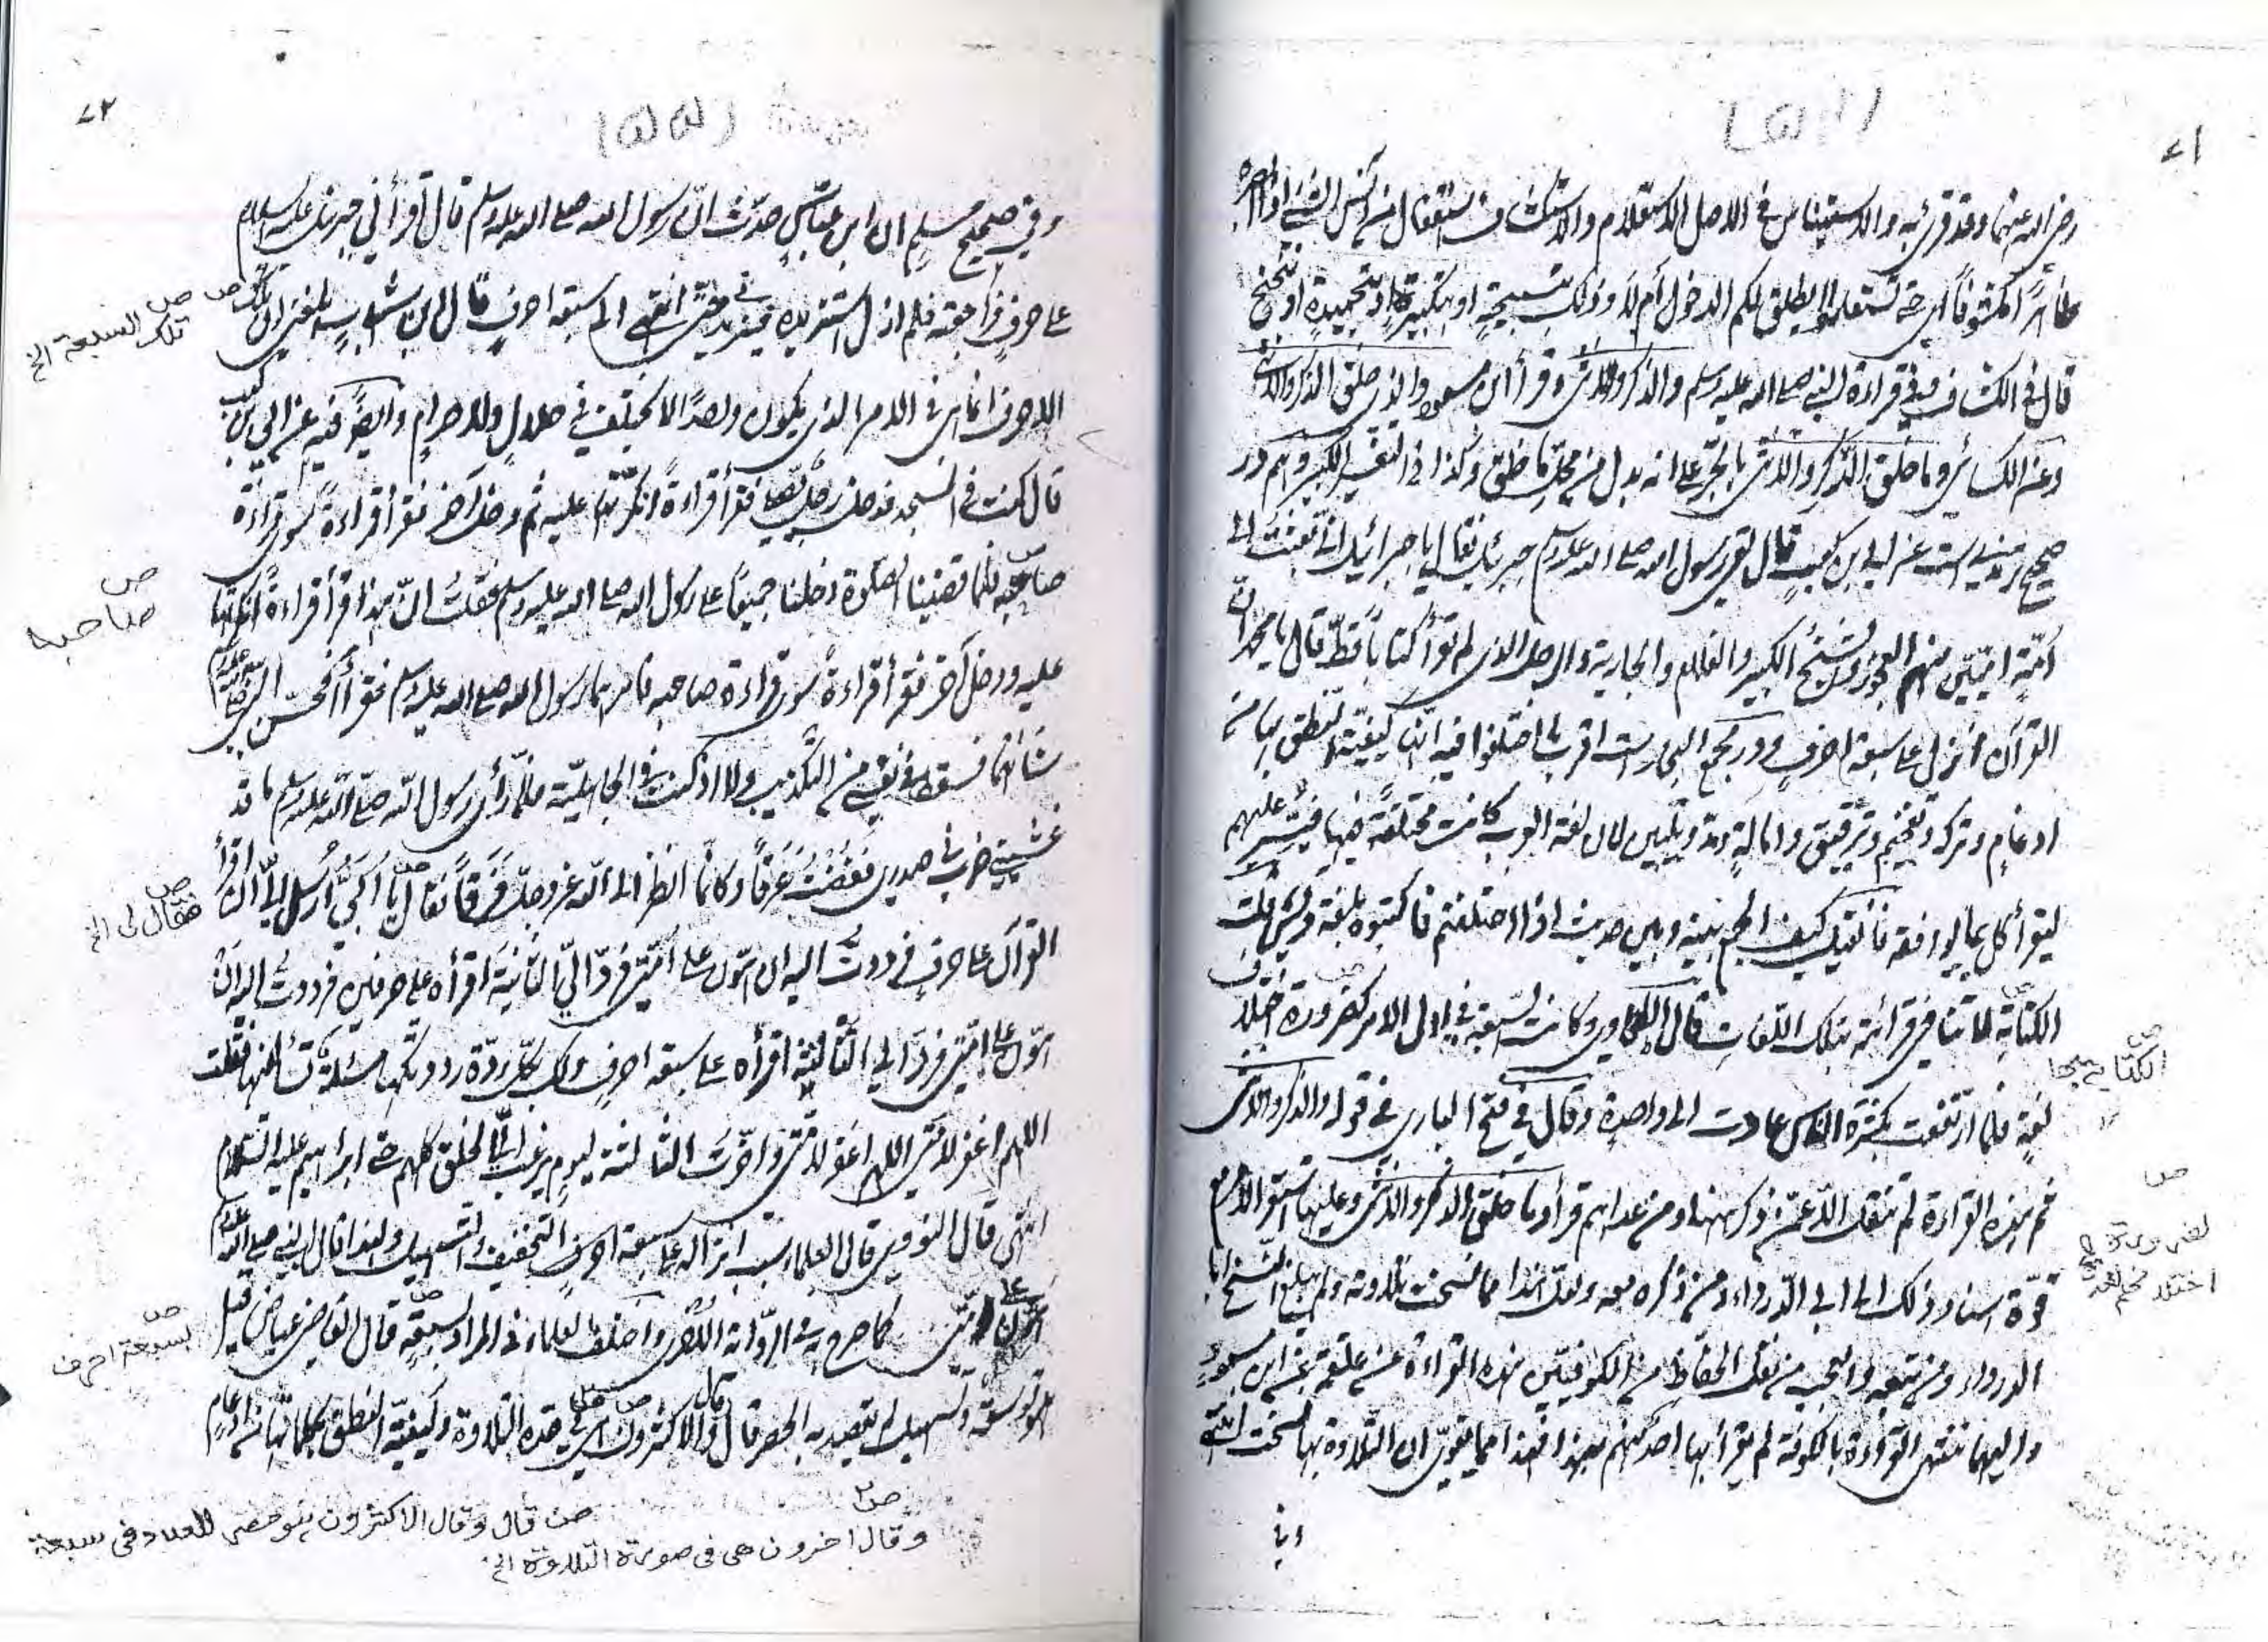 ٧١
رضى الله عنهما وقد قرئ به والاستيناس فى الاصل الاستعلام والاستكشاف استفعال من آنس الشئ اذا ابصره
ظاهرًا مكشوفًا اى حتى تستعلموا ايطلق لكم الدخول أم لا وذلك بتسبيحةٍ او بتكبيرةٍ او بتحميدةٍ او بتنحنح
قال فى الكشاف وفى قراءة النبى صلى الله عليه وسلم والذكر والانثى وقرأ ابن مسعود والذى خلق الذكر والانثى
وعن الكسائى وما خلق الذكرِ والانثى بالجرّ على انه بدل من محل ما خلق وكذا فى التفسير الكبير وهم در
صحيح ترمذى است عن ابى بن كعب قال لقى رسول الله صلى الله عليه وسلم جبرئيل فقال يا جبرائيل انى بعثت الى
اُمّة امّيّين منهم العجوز والشيخ الكبير والغلام والجارية والرجل الذى لم يقرأ كتابًا قطّ قال يا محمد انّ
القرآن أنزل على سبعة احرفٍ ودر مجمع البحار است اقرب ما اختلفوا فيه انها كيفية النطق بها من
ادغامٍ وتركه وتفخيم وترقيق وامالةٍ ومدّ وتليين لان لغة العرب كانت مختلفة فيها فيسّر عليهم
ليقرأ كل بما يوافقه فان قيل كيف الجمع بينه وبين حديث اذا اختلفتم فاكتبوه بلغة قريش قلت
الكتابة لا تنافى قرائته بتلك اللغات قال الطحاوى وكانت السبعة فى اول الامر كضرورة اختلاف
لغةٍ فلما ارتفعت بكثرة الناس عادت الى واحدةٍ وقال فى فتح البارى فى قوله والذكر والانثى
ثم هذه القراءة لم تنقل الا عمّن ذكر ههنا ومن عداهم قرأوا وما خلق الذكر والانثى وعليها استقر الامر مع
قوّة اسناد ذلك الى ابى الدرداء ومن ذكره معه ولعل هذا مما نسخت تلاوته ولم يبلغ النسخ ابا
الدرداء ومن تبعه والعجب من نقل الحفاظ من الكوفيين هذه القراءة عن علقمة عن ابن مسعود
واليهما تنتهى القراءة بالكوفة لم يقرأ بها احد منهم فهذا مما يقوى ان التلاوة بها نسخت انتهى
وفى
ص
الكتابة بها
ص
لضرورة
اختلاف لغة
٧٢
وفى صحيح مسلم ان ابن عباسٍ حدّث انّ رسول الله صلى الله عليه وسلم قال أقرأنى جبرئيل عليه السلام
على حرفٍ فراجعته فلم ازل استزيده فيزيدنى حتى انتهى الى سبعة احرف قال ابن شهاب بلغنى ان تلك
الاحرف انما هى فى الامر الذى يكون واحدًا لا يختلف فى حلالٍ ولا حرامٍ وايضًا فيه عن ابى بن كعب
قال كنت فى المسجد فدخل رجل يصلى فقرأ قراءةً انكرتها عليه ثم دخل آخر فقرأ قراءةً سوى قراءة
صاحبه فلما قضينا الصلوة دخلنا جميعًا على رسول الله صلى الله عليه وسلم فقلت انّ هذا قرأ قراءةً انكرتها
عليه ودخل آخر فقرأ قراءةً سوى قراءة صاحبه فامرهما رسول الله صلى الله عليه وسلم فقرأا فحسّن النبى صلى الله عليه وسلم
شانهما فسقط فى نفسى من التكذيب ولا اذ كنت فى الجاهليّة فلمّا رأى رسول الله صلّى الله عليه وسلم ما قد
غشينى ضرب فى صدرى ففضت عرقًا وكانّما انظر الى الله عزوجل فرقًا فقال يا ابىّ اُرسل الىّ ان اقرأ
القرآن على حرفٍ فرددت اليه ان هوّن على اُمّتى فردّ الىّ الثانية اقرأه على حرفين فرددت اليه ان
هوّن على امّتى فردّ الى الثالثة اقرأه على سبعة احرفٍ ولك بكلّ ردّة رددتكها مسئلة تسألنيها فقلت
اللهم اغفر لامّتى اللهم اغفر لامّتى واخّرت الثالثة ليومٍ يرغب الىّ الخلق كلهم حتى ابراهيم عليه السلام
انتهى قال النووى قال العلماء سبب انزاله على سبعة احرفٍ التخفيف والتسهيل ولهذا قال النبى صلى الله عليه وسلم
هوّن على امّتى كما صرح به فى الرواية الاخرى واختلف العلماء فى المراد بسبعة قال القاضى عياض قيل
هو توسعة وتسهيل لم يقصد به الحصر قال وقال الاكثرون هى فى عدة التلاوة وكيفيّة النطق بكلماتها من ادغام
ص تلك السبعة الخ
ص صاحبه
ص فقال لى الخ
ص بسبعة احرف
ص قال وقال الاكثرون هو حصر للعدد فى سبعة
ص٢ وقال اخرون هى فى صورة التلاوة الخ